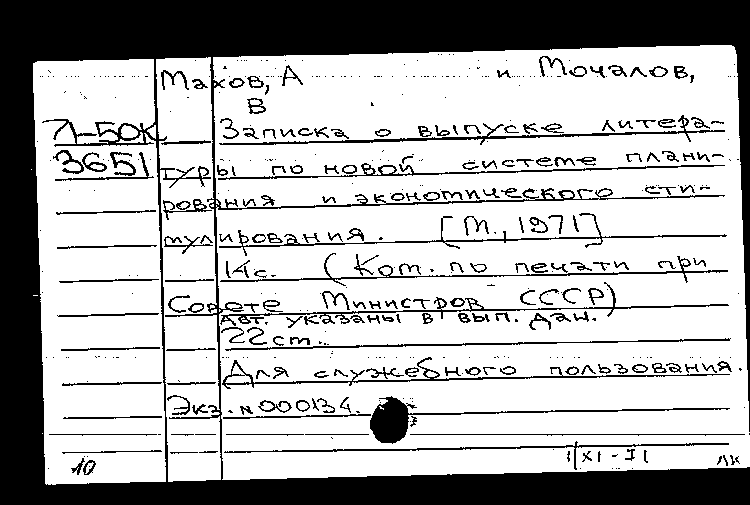 Махов, А и Мочалов,
В
Л-50к Записка о выпуске литера-
3651 туры по новой системе плани-
рования и экономического сти-
мулирования. [М., 1971]
14с. (Ком. по печати при
Совете Министров СССР)
Авт. указаны в вып. дан.
22 cm.
Для служебного пользования.
Экз. № 000134.
1/XI-71
10 лк